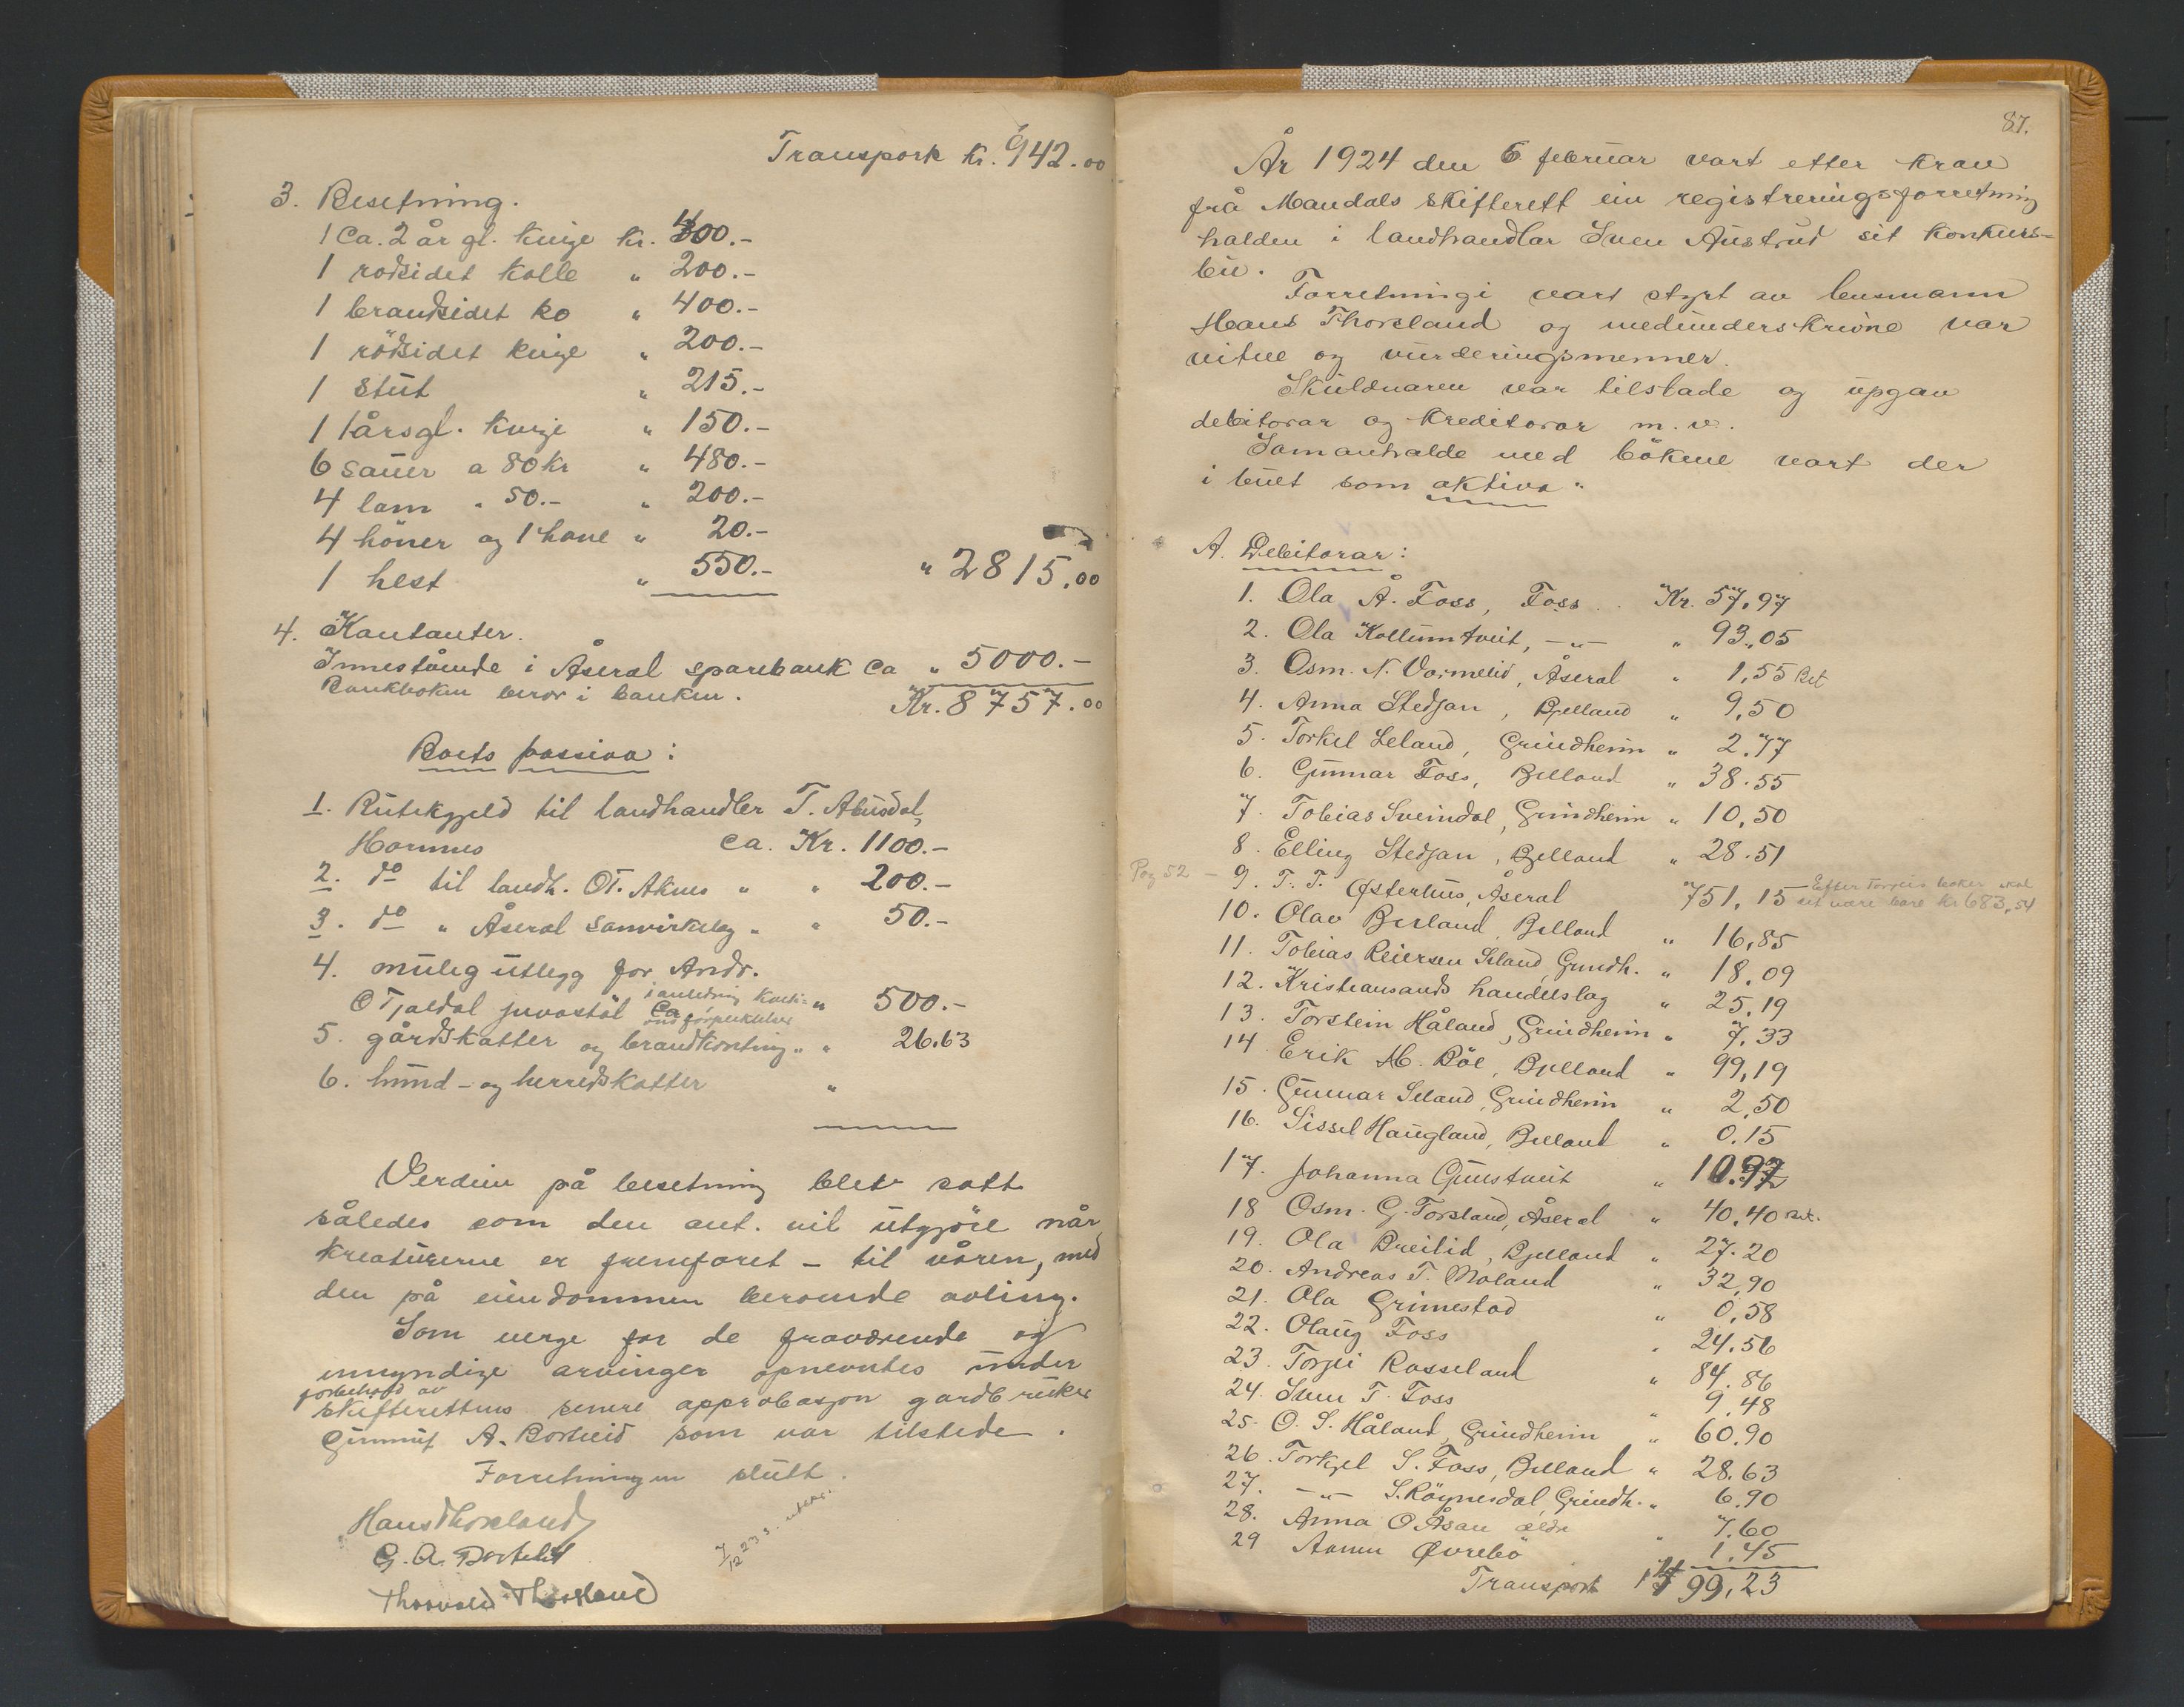 Transport kr. 942.00
3. Besetning.
1 Ca. 2 år gl. kvige kr. 400.-
1 rødsidet kolle " 200.-
1 brandsidet ko " 400.-
1 rödsidet kvige " 200.-
1 stut " 215.-
1 1 årsgl. kvige " 150.-
6 sauer a 80 kr " 480.-
4 lam " 50.- " 200.-
4 höner og 1 hane " 20.-
1 hest " 550.- " 2815.00
4. Kontanter.
Innestående i Åseral sparebank ca " 5000.-
Bankboken beror i banken. Kr. 8757.00
Boets passiva:
1. Rutekgjeld til landhandler T. Åbusdal,
Hornnes ca. Kr. 1100.-
2. do til landh. O.T. Aknes " " 200.-
3. do " Åseral samvirkelag " " 50.-
4. mulig utlegg for Andr.
O Tjaldal juvastøl Ca i anledning " 500.-
5. gårdskatter og brandkonting. " " 26.63
6. hund- og herredskatter "
Verdien på besetning blev satt
således som den ant. vil utgjöre når
kreaturerne er fremforet - til våren, med
den på eiendommen beroende avling.
Som verge for de fraværende og
umyndige arvinger opnevntes under
forbehold av
skifterettens senere approbasjon gardbruker
Gunnuf A. Bortheid som var tilstede.
Forretningen slutt.
Hans Thorsland
G. A. Bortheid
Thorvald Thorsland
7/12 23 s. utskr.
87.
År 1924 den 6 februar vart etter krav
frå Mandals skifterett ein registreringsforretning
halden i landhandlar Sven Austrud sit konkurs-
bu.
Forretningi vart styrt av lensmann
Hans Thorsland og medunderskrivne var
vitne og vurderingsmenner.
Skuldnaren var tilstade og upgav
debitorar og kreditorar m. v.
Samanhalde med bökene vart der
i buet som aktiva "
A. Debitorar:
1. Ola Å. Foss, Foss . . Kr. 57,97
2. Ola Kollumtveit, -"- " 93,05
3. Osm. N. Vormelid, Åseral " 1,55 Bet
4. Anna Stedjan, Bjelland " 9,50
5. Torkel Leland, Grindheim " 2.77
6. Gunnar Foss, Bjelland " 38.55
7. Tobias Sveindal, Grindheim " 10,50
8. Elling Stedjan, Bjelland " 28.51
Pag 52 - 9. T. T. Østerhus, Åseral 751,15 Efter Torjeis bøker skal
det være bare kr 683,54
10. Olav Berland, Bjelland " 16,85
11. Tobias Reiersen Seland, Grindh. " 18,09
12. Kristiansands handelslag " 25,19
13. Torstein Håland, Grindheim " 7,33
14 Erik M. Röe, Bjelland " 99,19
15. Gunnar Seland, Grindheim " 2,50
16. Sissel Haugland, Bjelland " 0.15
17. Johanna Gjurstveit " 10.97
18 Osm. G. Torsland, Åseral " 40,40 Bet.
19. Ola Breilid, Bjelland " 27.20
20. Andreas T. Moland " 32,90
21. Ola Grimestad " 0,58
22. Olaug Foss " 24.56
23. Torjei Rosseland " 84.86
24. Sven T. Foss " 9.48
25. O. S. Håland, Grindheim " 60.90
26. Torkjel S. Foss, Bjelland " 28.63
27. -"- S. Röynesdal, Grindh. " 6.90
28. Anna O Åsan eldr " 7.60
29 Aanen Øvrebö 1.45
Transport 1499,23